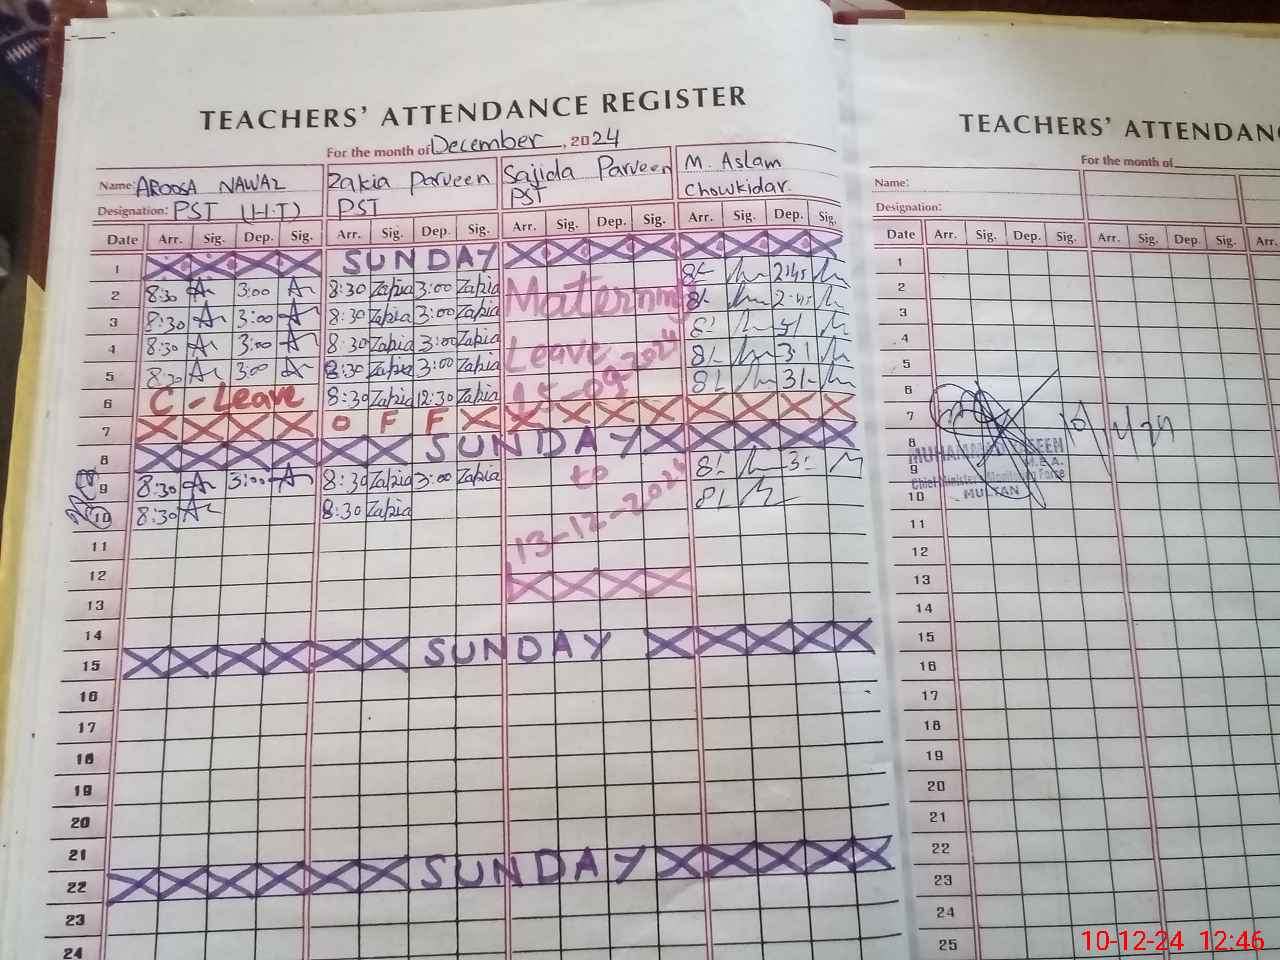 TEACHERS' ATTENDANCE REGISTER
For the month of December, 2024
Name: AROOSA NAWAZ Zakia Parveen Sajida Parveen M. Aslam
Designation: PST (H.T) PST PST Chowkidar.
Date Arr. Sig. Dep. Sig. Arr. Sig. Dep. Sig. Arr. Sig. Dep. Sig. Arr. Sig. Dep. Sig.
1 SUNDAY
2 8:30 3:00 8:30 Zakia 3:00 Zakia 8/- 2:45
3 8:30 3:00 8:30 Zakia 3:00 Zakia 8/- 2:45
4 8:30 3:00 8:30 Zakia 3:00 Zakia
5 8:30 3:00 8:30 Zakia 3:00 Zakia 8/-
6 C-Leave 8:30 Zakia 12:30 Zakia 8/-
Leave
15-09-2024
to
13-12-2024
7 OFF
8 SUNDAY
9 8:30 3:00 8:30 Zakia 3:00 Zakia 8/-
10 8:30 8:30 Zakia
11
12
13
14
15 SUNDAY
16
17
18
19
20
21
22 SUNDAY
23
24
TEACHERS' ATTENDANC
For the month of
Name:
Designation:
Date Arr. Sig. Dep. Sig. Arr. Sig. Dep. Sig. Arr.
1
2
3
4
5
6
7
8
9
10
11
12
13
14
15
16
17
18
19
20
21
22
23
24
25
M.E.A.
Chief Minister Monitoring Force
MULTAN
10-12-24 12:46